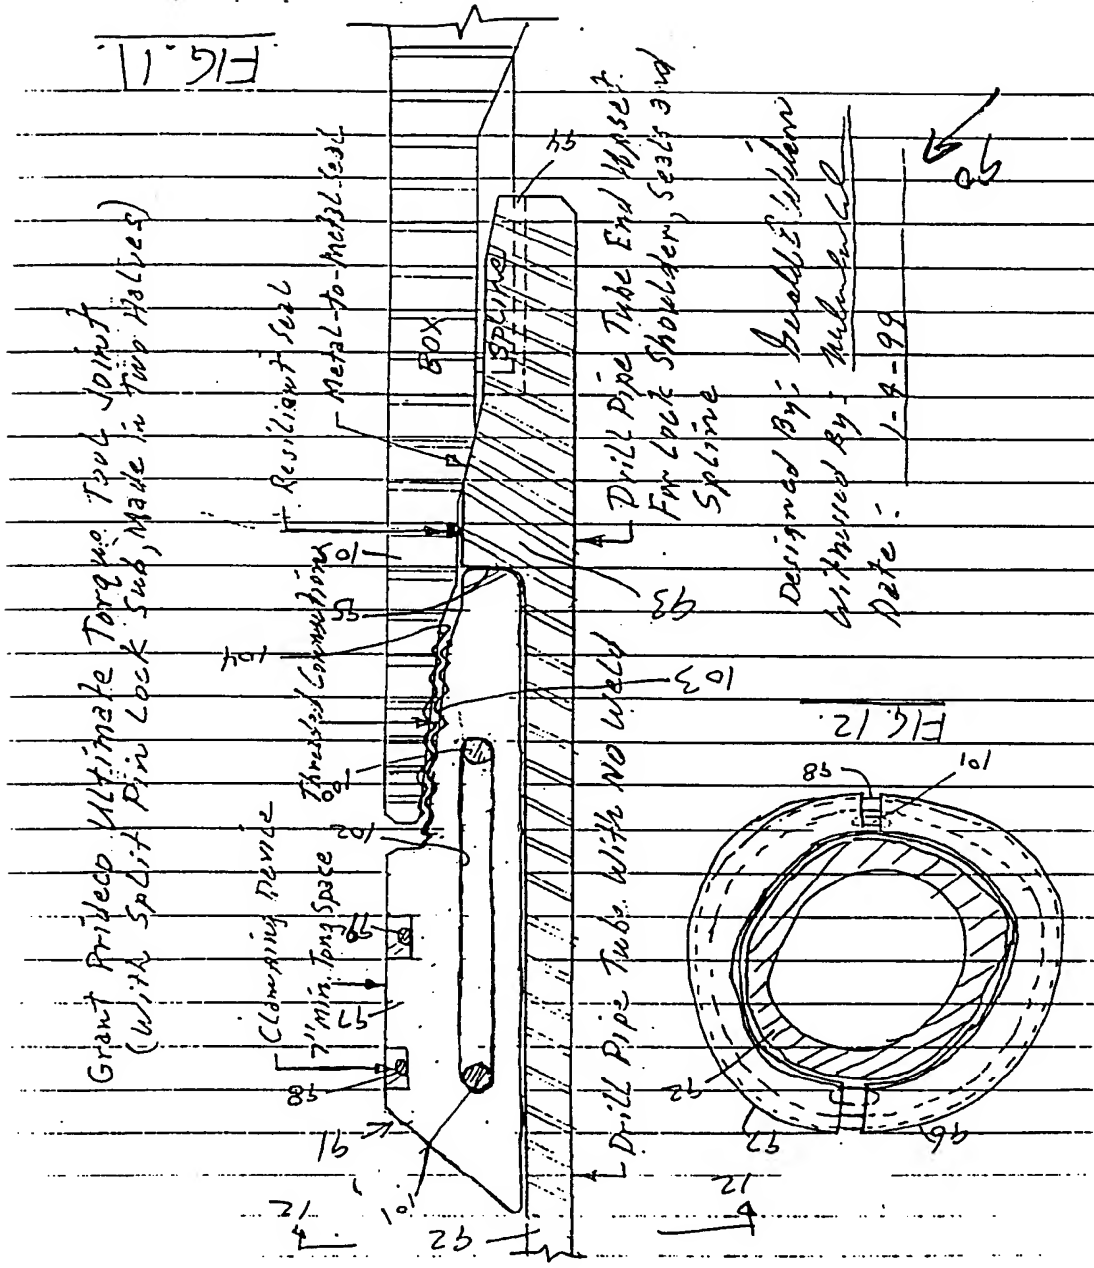 FIG. 11.
Grant Prideco Ultimate Torque Tool Joint
(With Split Pin Lock Sub, Made in Two Halves)
Clamping Device
7" Min. Tong Space
Threaded Connections
Resiliant Seal
Metal-to-Metal Seal
BOX
Spline
Drill Pipe Tube End Upset
For Lock Shoulder, Seals and
Spline
Drill Pipe Tube With No Weld
Designed By:
Witnessed By:
Date: 1-4-99
90
94
10
95
104
103
93
100
102
99
97
98
91
101
92
12
12
FIG. 12.
98
101
92
97
96